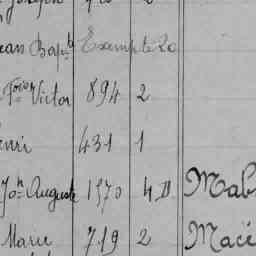 Jean Bapt Exempté 20
Fois Victor 894 2
enri 431 1
Jon Auguste 1570 4 D Mab
Marie 719 2 Macé